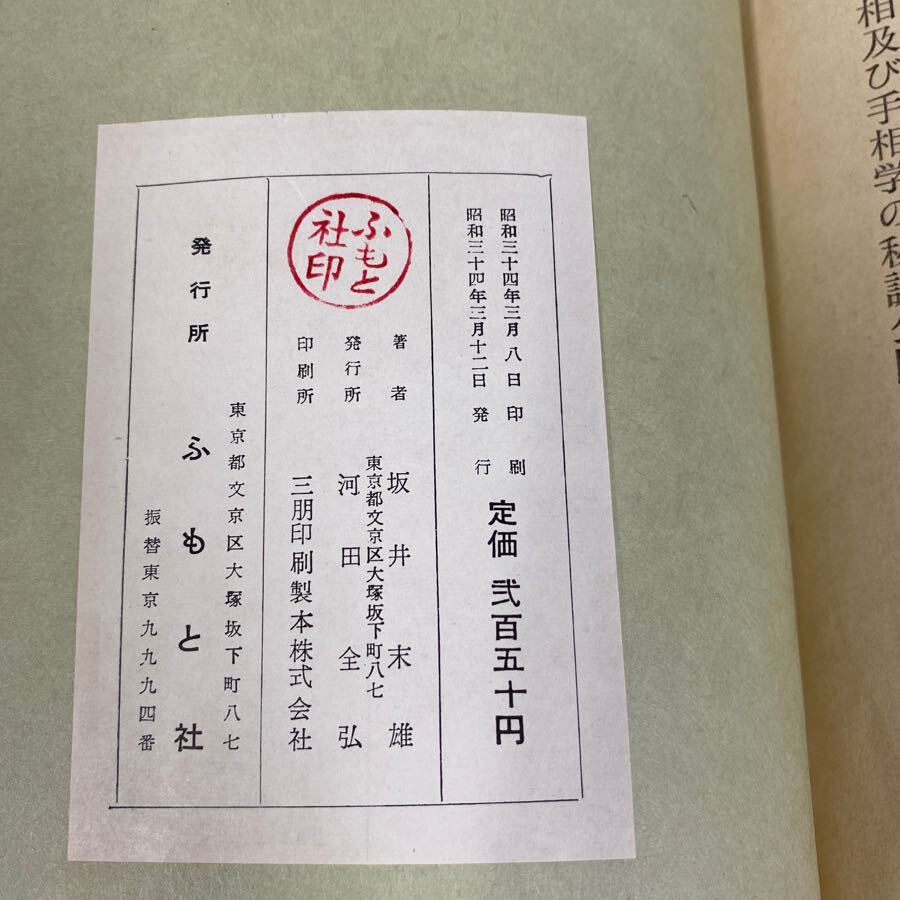 相及び手相学の秘訣公開
昭和三十四年三月八日　印刷
昭和三十四年三月十二日　発行
定価 弐百五十円
ふもと
社印
著者　坂井末雄
東京都文京区大塚坂下町八七
発行所　河田全弘
印刷所　三朋印刷製本株式会社
東京都文京区大塚坂下町八七
発行所　ふもと社
振替東京九九九四番